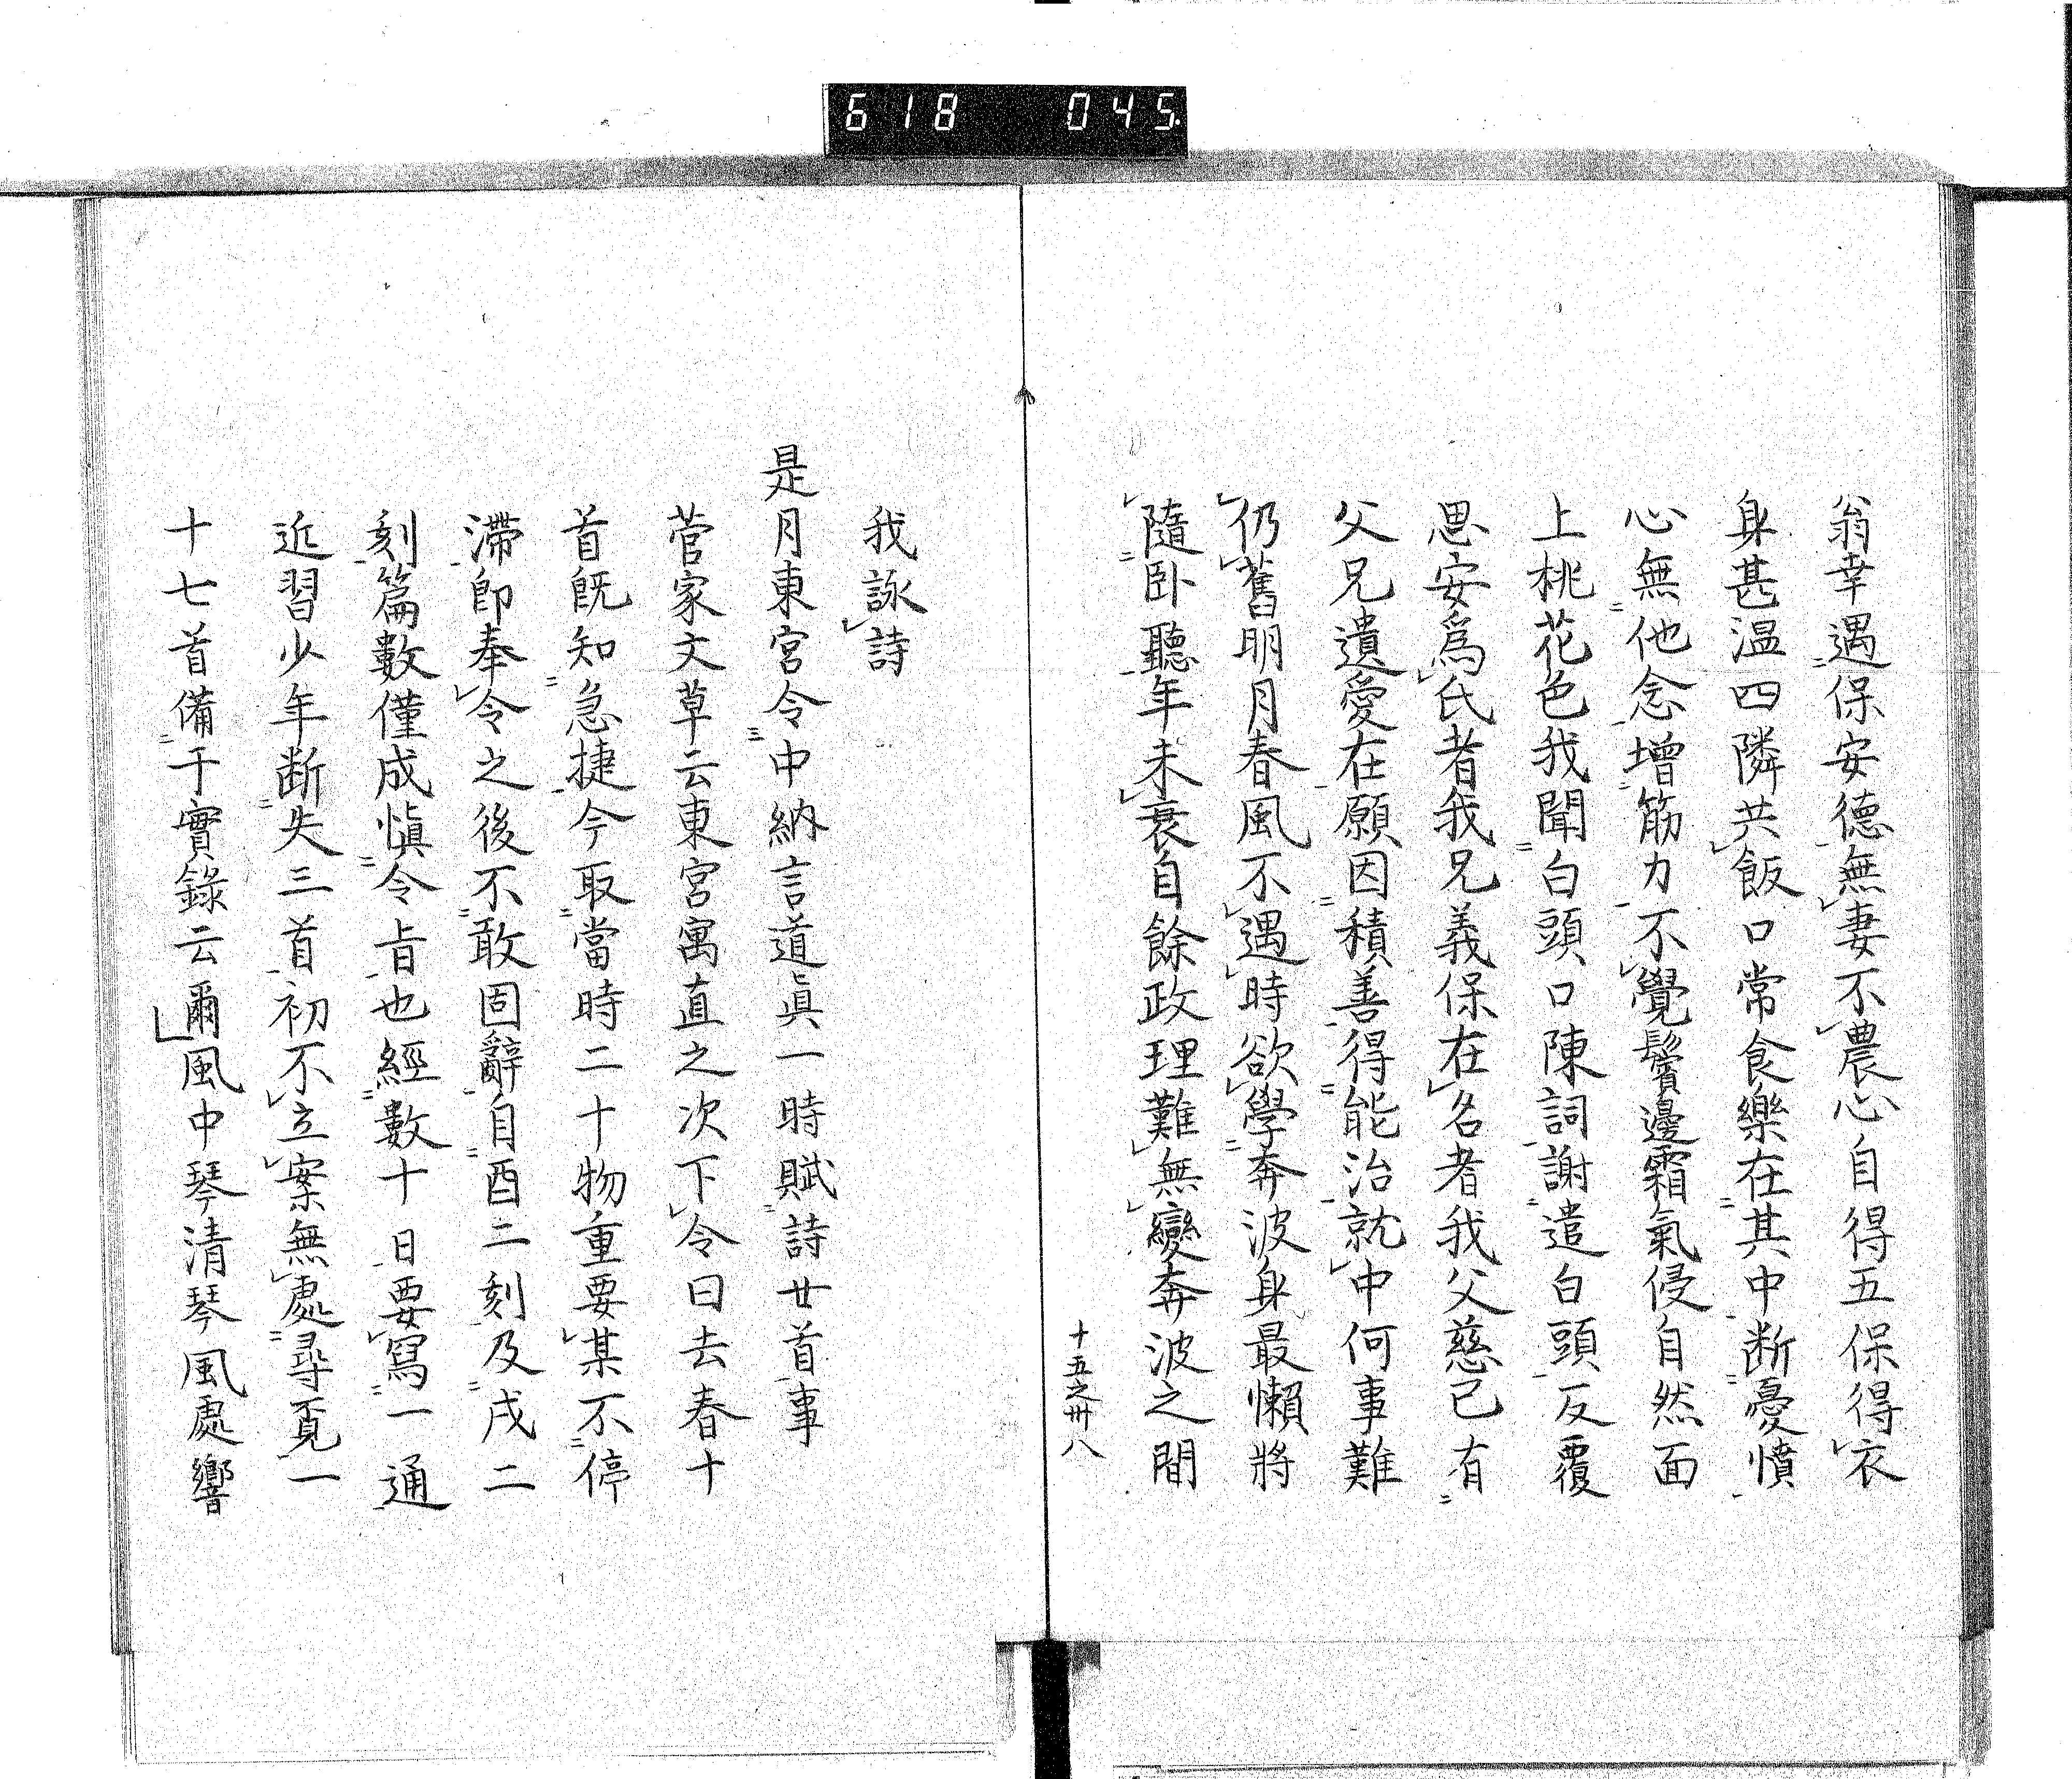 618 045.
翁幸遇保安德無妻不農心自得五保得衣
身甚温四隣共飯口常食樂在其中断憂憤
心無他念增筋力不覺鬢邊霜氣侵自然面
上桃花色我聞白頭口陳詞謝遣白頭反覆
思安爲氏者我兄義保在名者我父慈已有
父兄遺愛在願因積善得能治就中何事難
仍舊明月春風不遇時欲學奔波身最懶將
隨卧聽年未衰自餘政理難無變奔波之間
十五之卅八
我詠詩
是月東宮令中納言道眞一時賦詩廿首事
菅家文草云東宮寓直之次下令曰去春十
首既知急捷今取當時二十物重要某不停
滯卽奉令之後不敢固辭自酉二刻及戌二
刻篇數僅成愼令旨也經數十日要寫一通
近習少年断失三首初不立案無處尋覓一
十七首備于實錄云爾風中琴清琴風處響